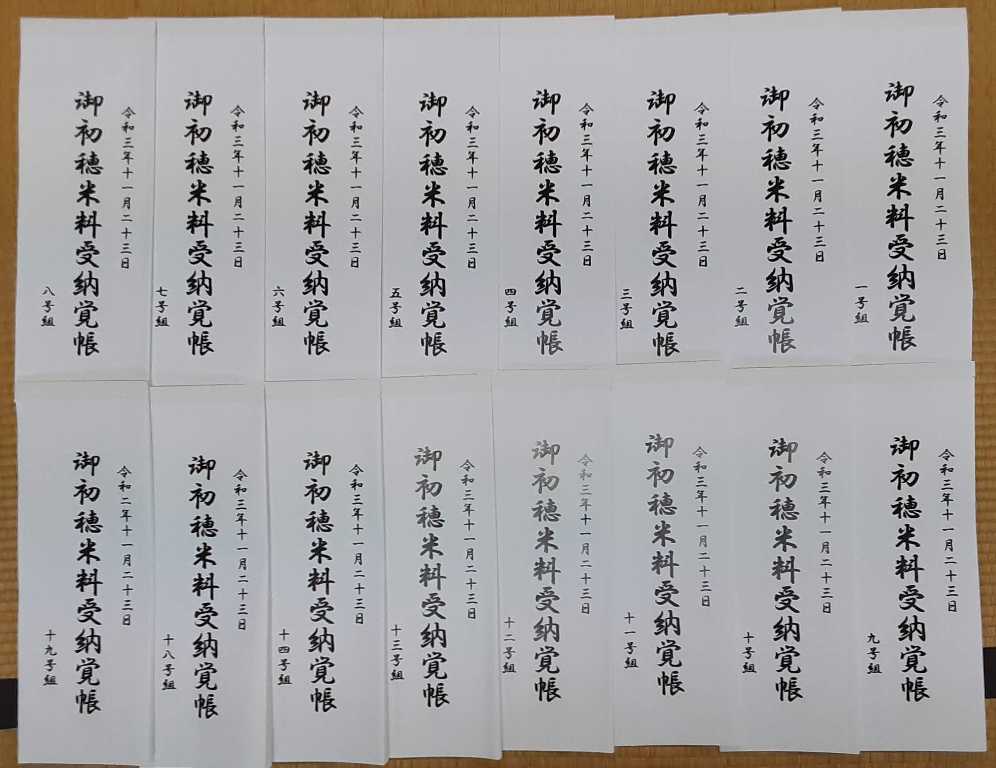 令和三年十一月二十三日
御初穂米料受納覚帳
一号組
令和三年十一月二十三日
御初穂米料受納覚帳
二号組
令和三年十一月二十三日
御初穂米料受納覚帳
三号組
令和三年十一月二十三日
御初穂米料受納覚帳
四号組
令和三年十一月二十三日
御初穂米料受納覚帳
五号組
令和三年十一月二十三日
御初穂米料受納覚帳
六号組
令和三年十一月二十三日
御初穂米料受納覚帳
七号組
令和三年十一月二十三日
御初穂米料受納覚帳
八号組
令和三年十一月二十三日
御初穂米料受納覚帳
九号組
令和三年十一月二十三日
御初穂米料受納覚帳
十号組
令和三年十一月二十三日
御初穂米料受納覚帳
十一号組
令和三年十一月二十三日
御初穂米料受納覚帳
十二号組
令和三年十一月二十三日
御初穂米料受納覚帳
十三号組
令和三年十一月二十三日
御初穂米料受納覚帳
十四号組
令和三年十一月二十三日
御初穂米料受納覚帳
十八号組
令和二年十一月二十三日
御初穂米料受納覚帳
十九号組